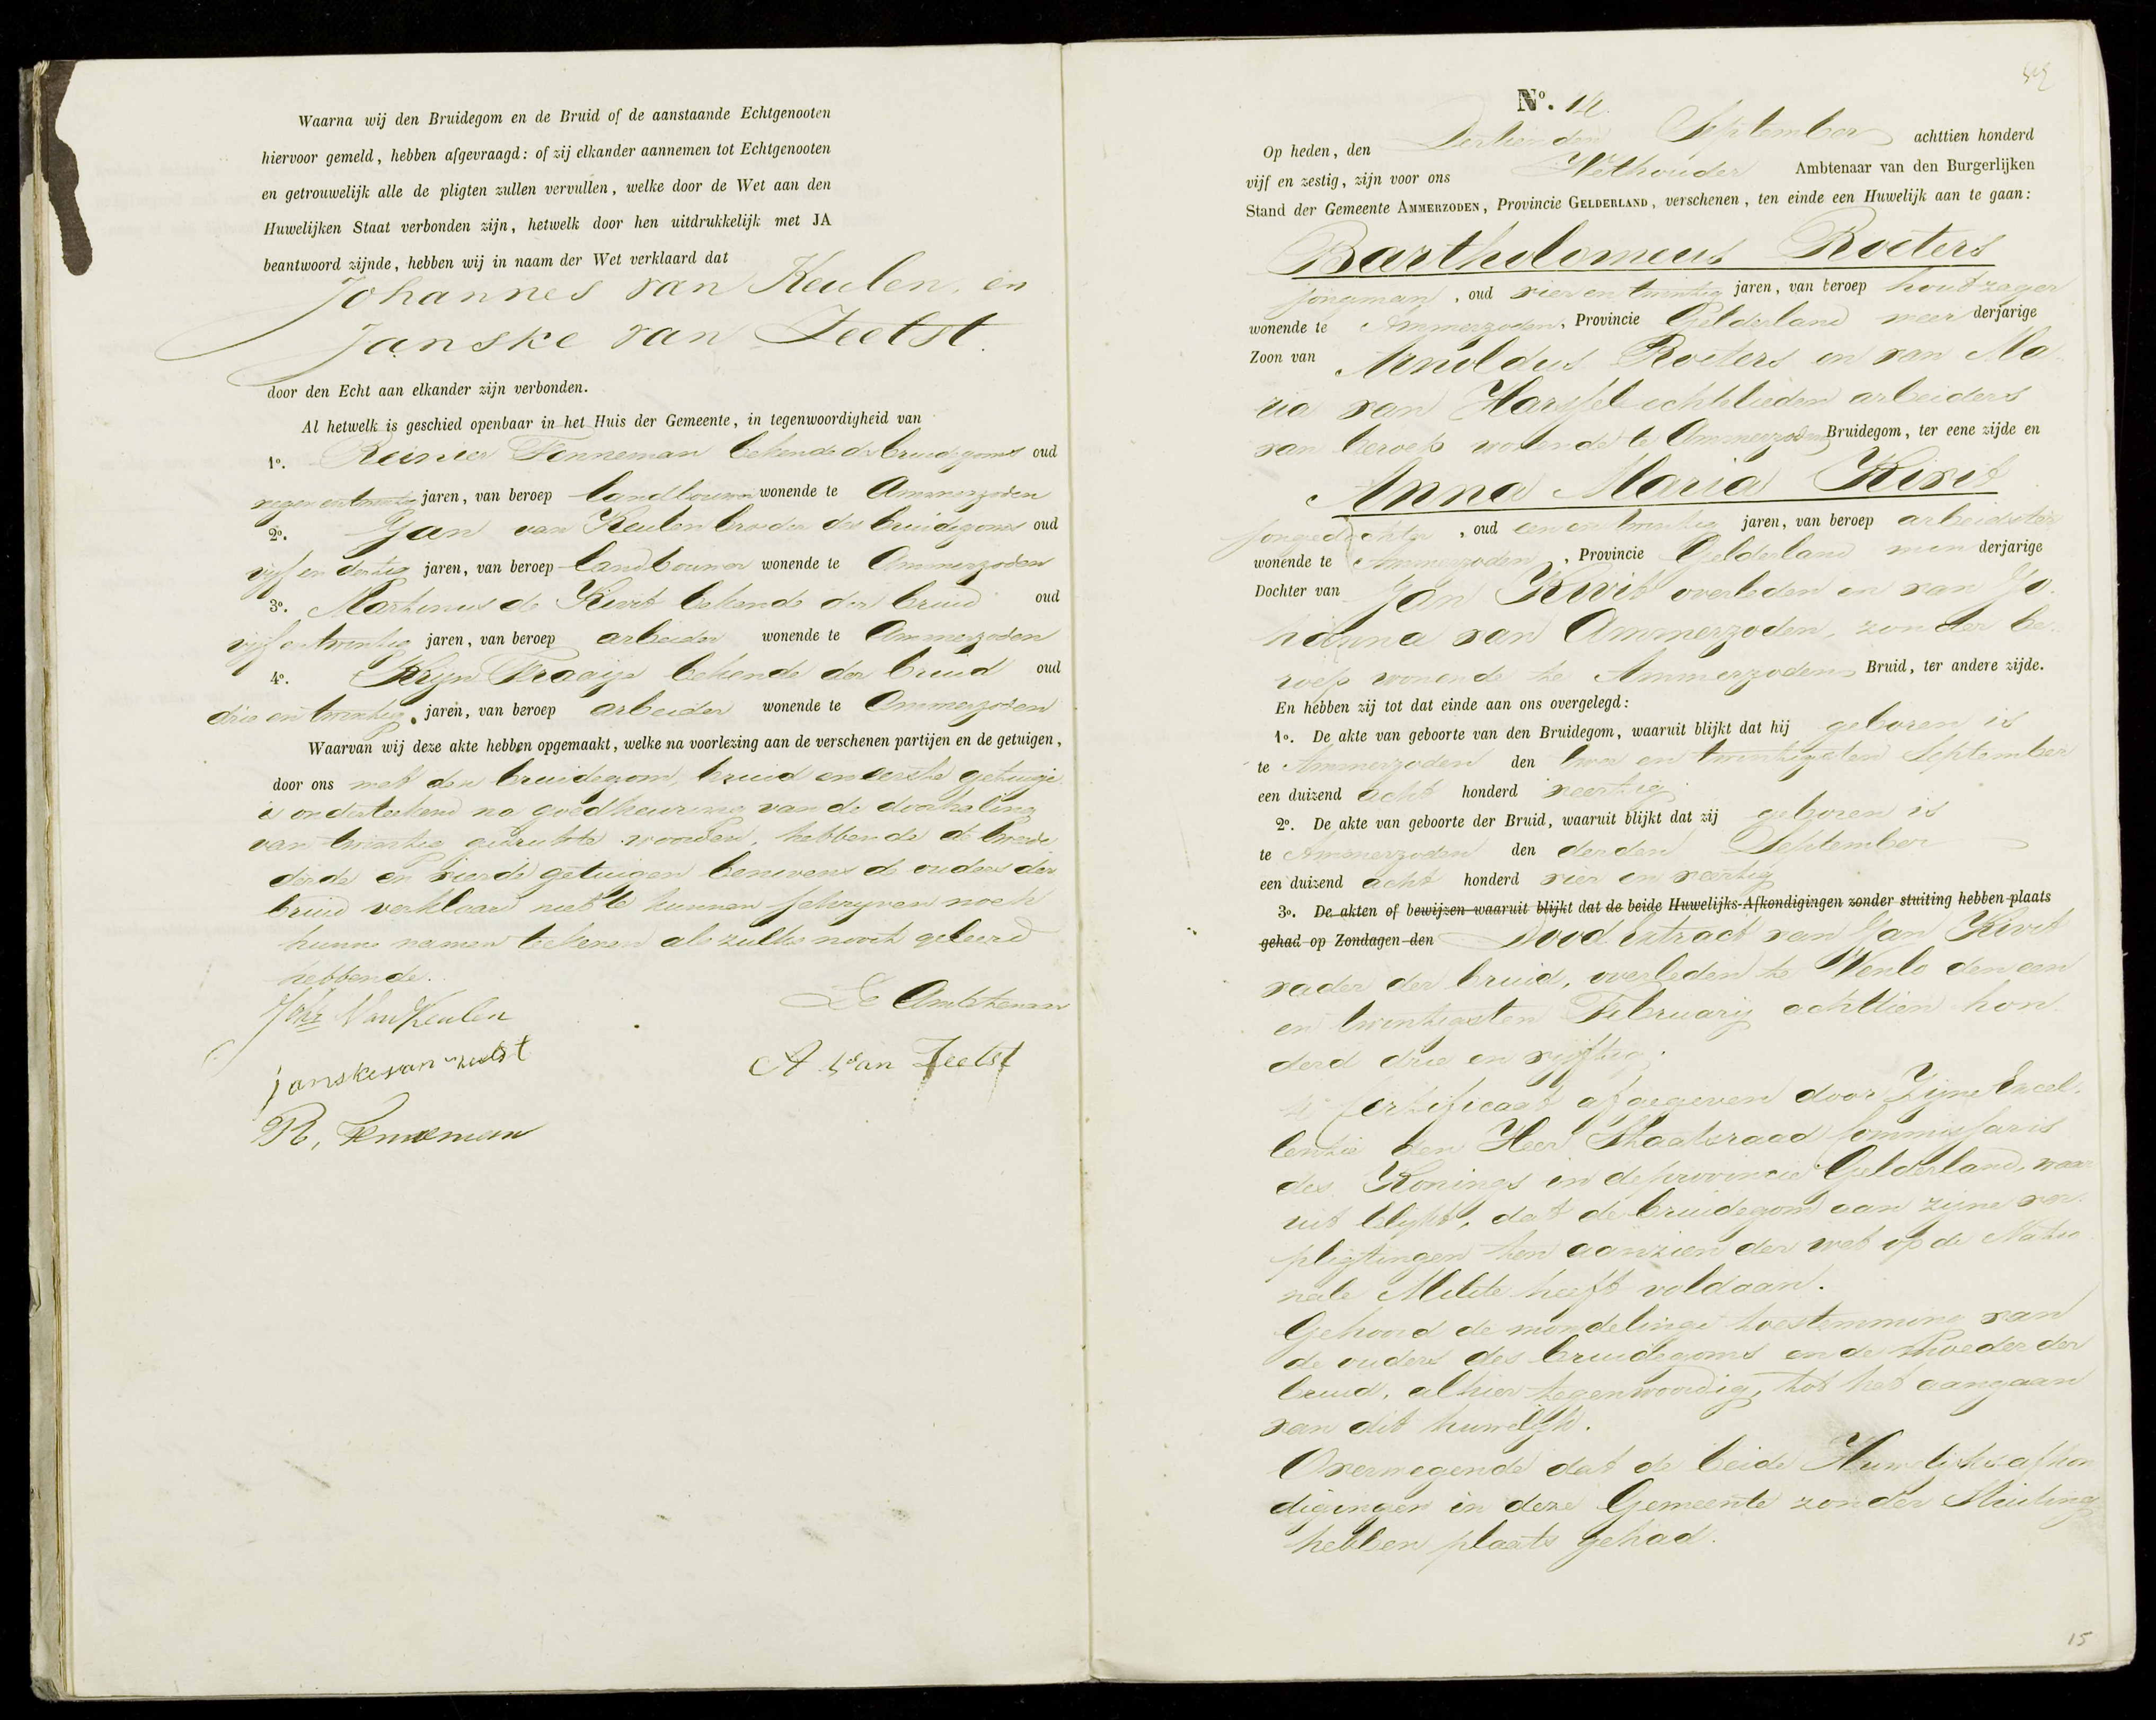 Waarna wij den Bruidegom en de Bruid of de aanstaande Echtgenooten
hiervoor gemeld, hebben afgevraagd: of zij elkander aannemen tot Echtgenooten
en getrouwelijk alle de pligten zullen vervullen, welke door de Wet aan den
Huwelijken Staat verbonden zijn, hetwelk door hen uitdrukkelijk met JA
beantwoord zijnde, hebben wij in naam der Wet verklaard dat
Johannes van Keulen, en
Janske van Zeelst.
door den Echt aan elkander zijn verbonden.
Al hetwelk is geschied openbaar in het Huis der Gemeente, in tegenwoordigheid van
1o. Reinier Fenneman bekende des bruidegoms oud
negen en twintig jaren, van beroep landbouwer wonende te Ammerzoden
2o. Jan van Keulen broeder des bruidegoms oud
vijf en dertig jaren, van beroep landbouwer wonende te Ammerzoden
3o. Martinus de Kivit bekende der bruid oud
vijf en twintig jaren, van beroep arbeider wonende te Ammerzoden
4o. Krijn Fraaije bekende der bruid oud
drie en twintig jaren, van beroep arbeider wonende te Ammerzoden
Waarvan wij deze akte hebben opgemaakt, welke na voorlezing aan de verschenen partijen en de getuigen,
door ons met den bruidegom, bruid en eerste getuige
is onderteekend na goedkeuring van de doorhaling
van twintig gedrukte woorden, hebbende de tweede
derde en vierde getuigen benevens de ouders der
bruid verklaard niet te kunnen schrijven noch
hunne namen teekenen als zulks nooit geleerd
hebbende.
Johs Van Keulen
De Ambtenaar
janske van zeelst
A van Zeelst
R, Fenneman
No. 14.
Op heden, den Dertienden September achttien honderd
vijf en zestig, zijn voor ons Wethouder Ambtenaar van den Burgerlijken
Stand der Gemeente AMMERZODEN, Provincie GELDERLAND, verschenen, ten einde een Huwelijk aan te gaan:
Bartholomeus Roeters
jongman, oud vier en twintig jaren, van beroep houtzager
wonende te Ammerzoden, Provincie Gelderland meer derjarige
Zoon van Arnoldus Roeters en van Ma
ria van Harssel echtelieden arbeiders
van beroep wonende te Ammerzoden Bruidegom, ter eene zijde en
Anna Maria Kivit
jongedochter, oud een en twintig jaren, van beroep arbeidster
wonende te Ammerzoden, Provincie Gelderland min derjarige
Dochter van Jan Kivit overleden en van Jo
hanna van Ammerzoden, zonder be
roep wonende te Ammerzoden Bruid, ter andere zijde.
En hebben zij tot dat einde aan ons overgelegd:
1o. De akte van geboorte van den Bruidegom, waaruit blijkt dat hij geboren is
te Ammerzoden den twee en twintigsten September
een duizend acht honderd veertig
2o. De akte van geboorte der Bruid, waaruit blijkt dat zij geboren is
te Ammerzoden den derden September
een duizend acht honderd vier en veertig
3o. De akten of bewijzen waaruit blijkt dat de beide Huwelijks-Afkondigingen zonder stuiting hebben plaats
gehad op Zondagen den Dood extract van Jan Kivit
vader der bruid, overleden te Venlo den een
en twintigsten February achttien hon
derd drie en vijftig.
4 Certificaat afgegeven door Zijne Excel.
lentie den Heer Staatsraad Commissaris
des Konings in de provincie Gelderland, waar
uit blijkt, dat de bruidegom aan zijne ver
pligtingen ten aanzien der wet op de Natio
nale Militie heeft voldaan.
Gehoord de mondelinge toestemming van
de ouders des bruidegoms en de moeder der
bruid, alhier tegenwoordig, tot het aangaan
van dit huwelijk.
Overwegende dat de beide Huwelijksafkon
digingen in deze Gemeente zonder Stuiting
hebben plaats gehad.
15